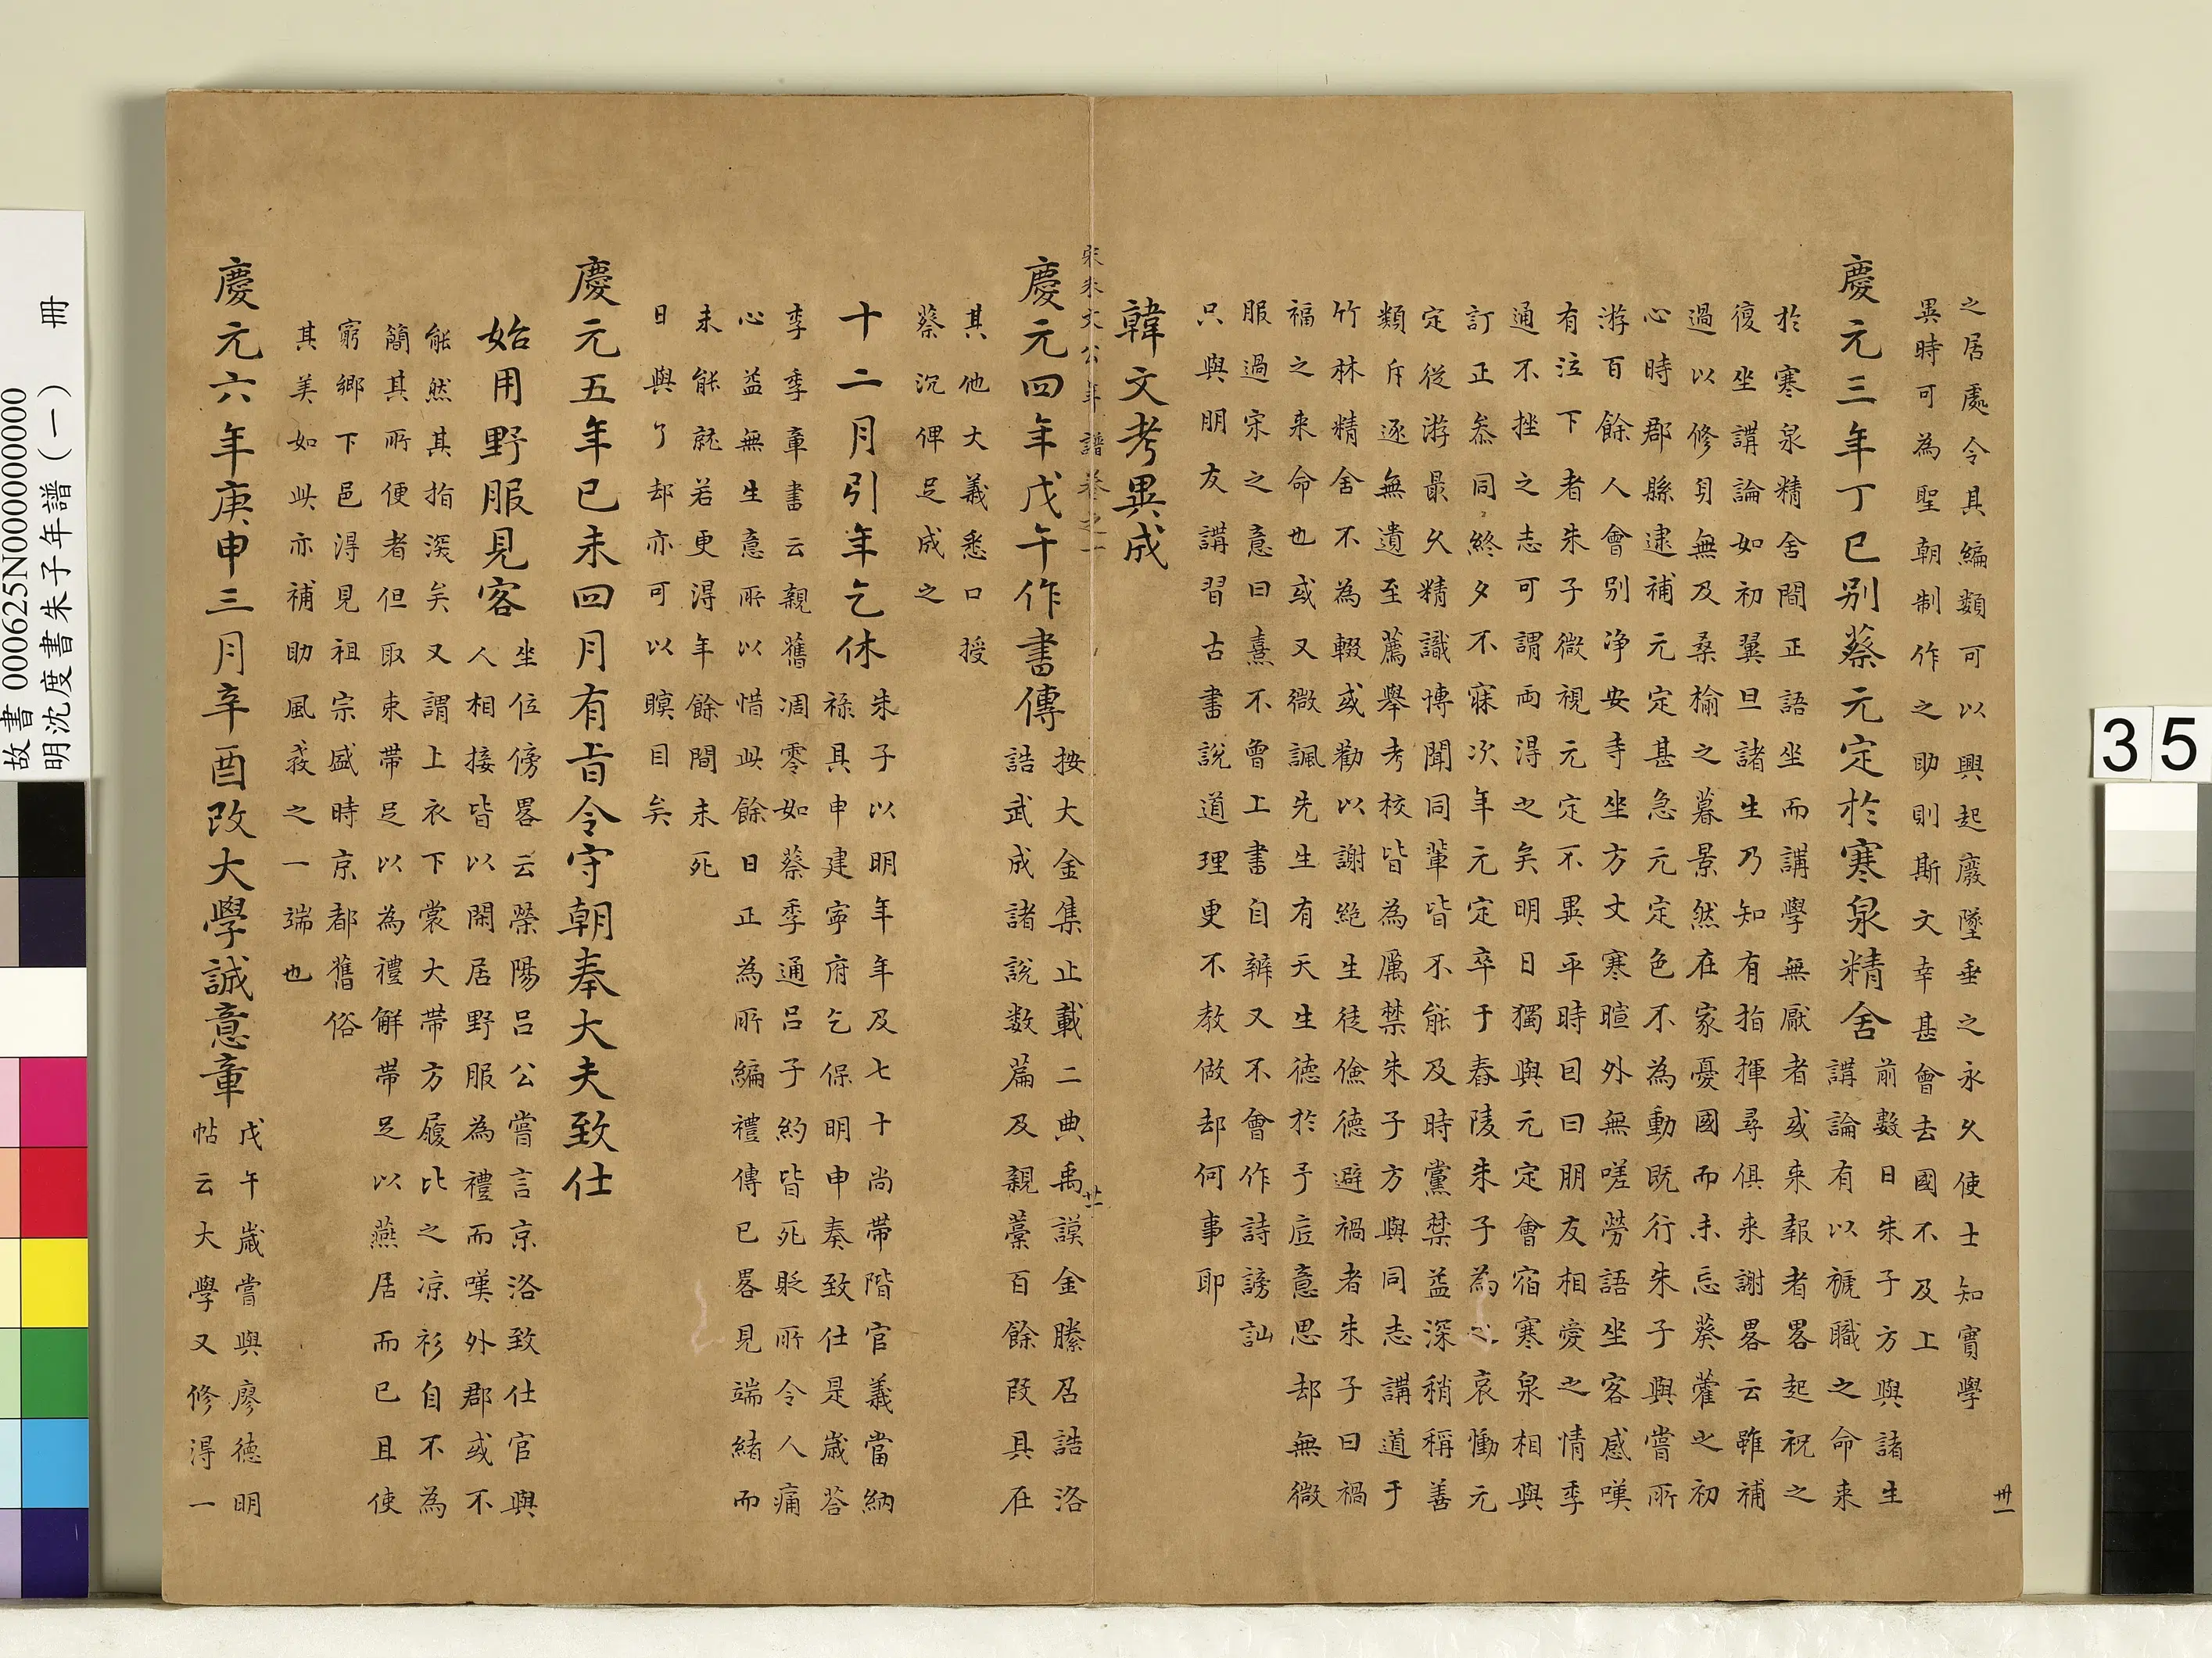 之居處令其編類可以興起廢墜垂之永久使士知實學
異時可為聖朝制作之助則斯文幸甚會去國不及上
慶元三年丁巳别蔡元定於寒泉精舍
前數日朱子方與諸生
講論有以褫職之命来
於寒泉精舍間正語坐而講學無厭者或来報者畧起祝之
復坐講論如初翼旦諸生乃知有指揮尋俱来謝畧云雖補
過以修身無及桑榆之暮景然在家憂國而未忘葵藿之初
心時郡縣逮補元定甚急元定色不為動既行朱子與嘗所
游百餘人會别净安寺坐方丈寒暄外無嗟勞語坐客感嘆
有泣下者朱子微視元定不異平時因曰朋友相愛之情季
通不挫之志可謂両得之矣明日獨與元定會宿寒泉相與
訂正叅同終夕不寐次年元定卒于舂陵朱子為之哀慟元
定從游最久精識博聞同輩皆不能及時黨禁益深稍稱善
類斥逐無遺至薦舉考校皆為厲禁朱子方與同志講道于
竹林精舍不為輟或勸以謝絶生徒儉德避禍者朱子曰禍
福之来命也或又微諷先生有天生德於予底意思却無微
服過宋之意曰熹不曾上書自辨又不會作詩謗訕
只與朋友講習古書說道理更不教做却何事耶
韓文考異成
宋朱文公年譜卷之一
廿一
慶元四年戊午作書傳
按大金集止載二典禹謨金縢召誥洛
誥武成諸說数篇及親藁百餘段具在
其他大義悉口授
蔡沉俾足成之
十二月引年乞休
朱子以明年年及七十尚帶階官義當納
禄具申建寧府乞保明申奏致仕是歲荅
李季章書云親舊凋零如蔡季通吕子約皆死貶所令人痛
心益無生意所以惜此餘日正為所編禮傳已畧見端緒而
未能就若更得年餘間未死
日與了却亦可以瞑目矣
慶元五年已未四月有旨令守朝奉大夫致仕
始用野服見客
坐位傍畧云滎陽吕公嘗言京洛致仕官與
人相接皆以閑居野服為禮而嘆外郡或不
能然其指深矣又謂上衣下裳大帶方履比之凉衫自不為
簡其所便者但取束帶足以為禮解帶足以燕居而已且使
窮鄉下邑得見祖宗盛時京都舊俗
其美如此亦補助風教之一端也
慶元六年庚申三月辛酉改大學誠意章
戊午歲嘗與廖德明
帖云大學又修得一
卅一
35
故書 000625N000000000
明沈度書朱子年譜(一) 冊